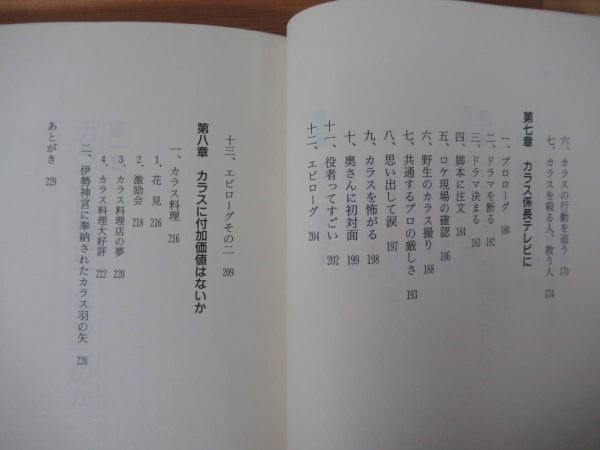 六、カラスの行動を追う 170
七、カラスを殺る人、救う人 174
第七章 カラス係長テレビに
一、プロローグ 180
二、ドラマを断る 182
三、ドラマ決まる 183
四、脚本に注文 184
五、ロケ現場の確認 186
六、野生のカラス撮り 188
七、共通するプロの厳しさ 193
八、思い出して涙 197
九、カラスを怖がる 198
十、奥さんに初対面 199
十一、役者ってすごい 202
十二、エピローグ 204
十三、エピローグその二 209
第八章 カラスに付加価値はないか
一、カラス料理 216
1．花見 216
2．激励会 218
3．カラス料理店の夢 220
4．カラス料理大好評 222
二、伊勢神宮に奉納されたカラス羽の矢 226
あとがき 229